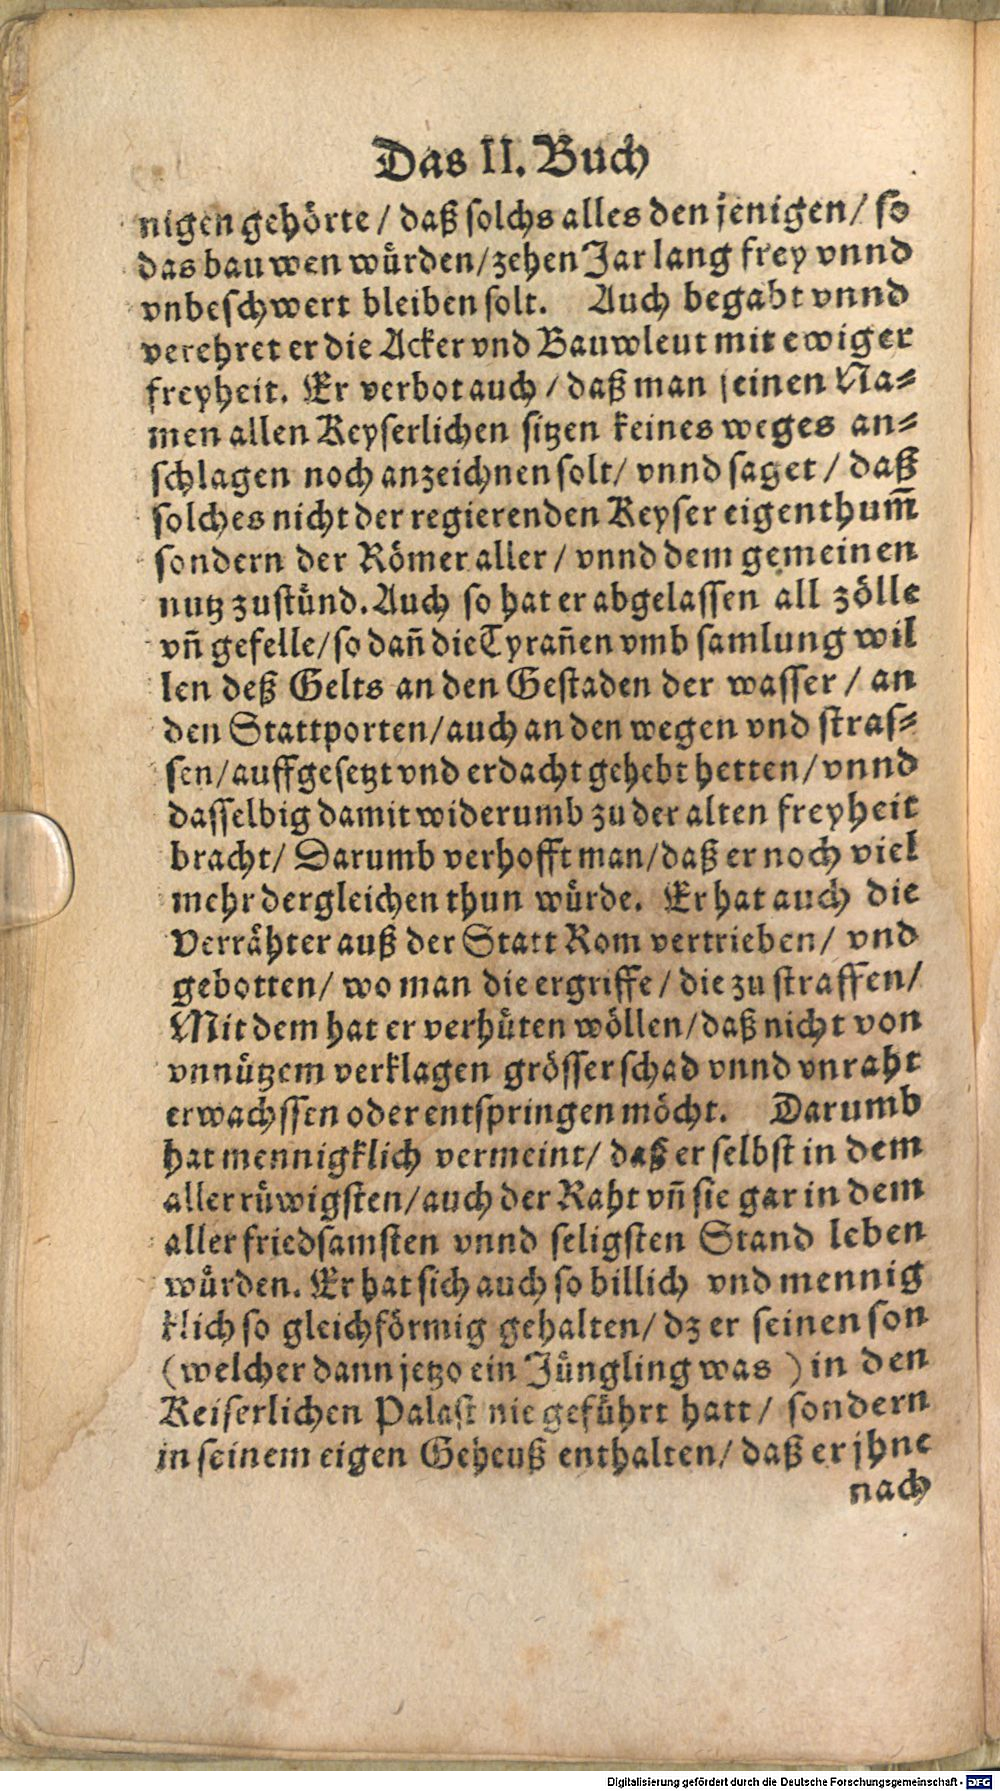 Das II. Buch
nigen gehörte / daß solchs alles den jenigen / so
das bauwen würden / zehen Jar lang frey vnnd
vnbeschwert bleiben solt. Auch begabt vnnd
verehret er die Acker vnd Bauwleut mit ewiger
freyheit. Er verbot auch / daß man seinen Na-
men allen Keyserlichen sitzen keines weges an-
schlagen noch anzeichnen solt / vnnd saget / daß
solches nicht der regierenden Keyser eigenthum̃
sondern der Römer aller / vnnd dem gemeinen
nutz zustünd. Auch so hat er abgelassen all zölle
vñ gefelle / so dañ die Tyrañen vmb samlung wil
len deß Gelts an den Gestaden der wasser / an
den Stattporten / auch an den wegen vnd stras-
sen / auffgesetzt vnd erdacht gehebt hetten / vnnd
dasselbig damit widerumb zu der alten freyheit
bracht / Darumb verhofft man / daß er noch viel
mehr dergleichen thun würde. Er hat auch die
Verrähter auß der Statt Rom vertrieben / vnd
gebotten / wo man die ergriffe / die zu straffen /
Mit dem hat er verhüten wöllen / daß nicht von
vnnützem verklagen grösser schad vnnd vnraht
erwachssen oder entspringen möcht. Darumb
hat mennigklich vermeint / daß er selbst in dem
aller rüwigsten / auch der Raht vñ sie gar in dem
aller friedsamsten vnnd seligsten Stand leben
würden. Er hat sich auch so billich vnd mennig
klich so gleichförmig gehalten / dz er seinen son
(welcher dann jetzo ein Jüngling was ) in den
Keiserlichen Palast nie geführt hatt / sondern
in seinem eigen Geheuß enthalten / daß er jhne
nach
Digitalisierung gefördert durch die Deutsche Forschungsgemeinschaft - DFG